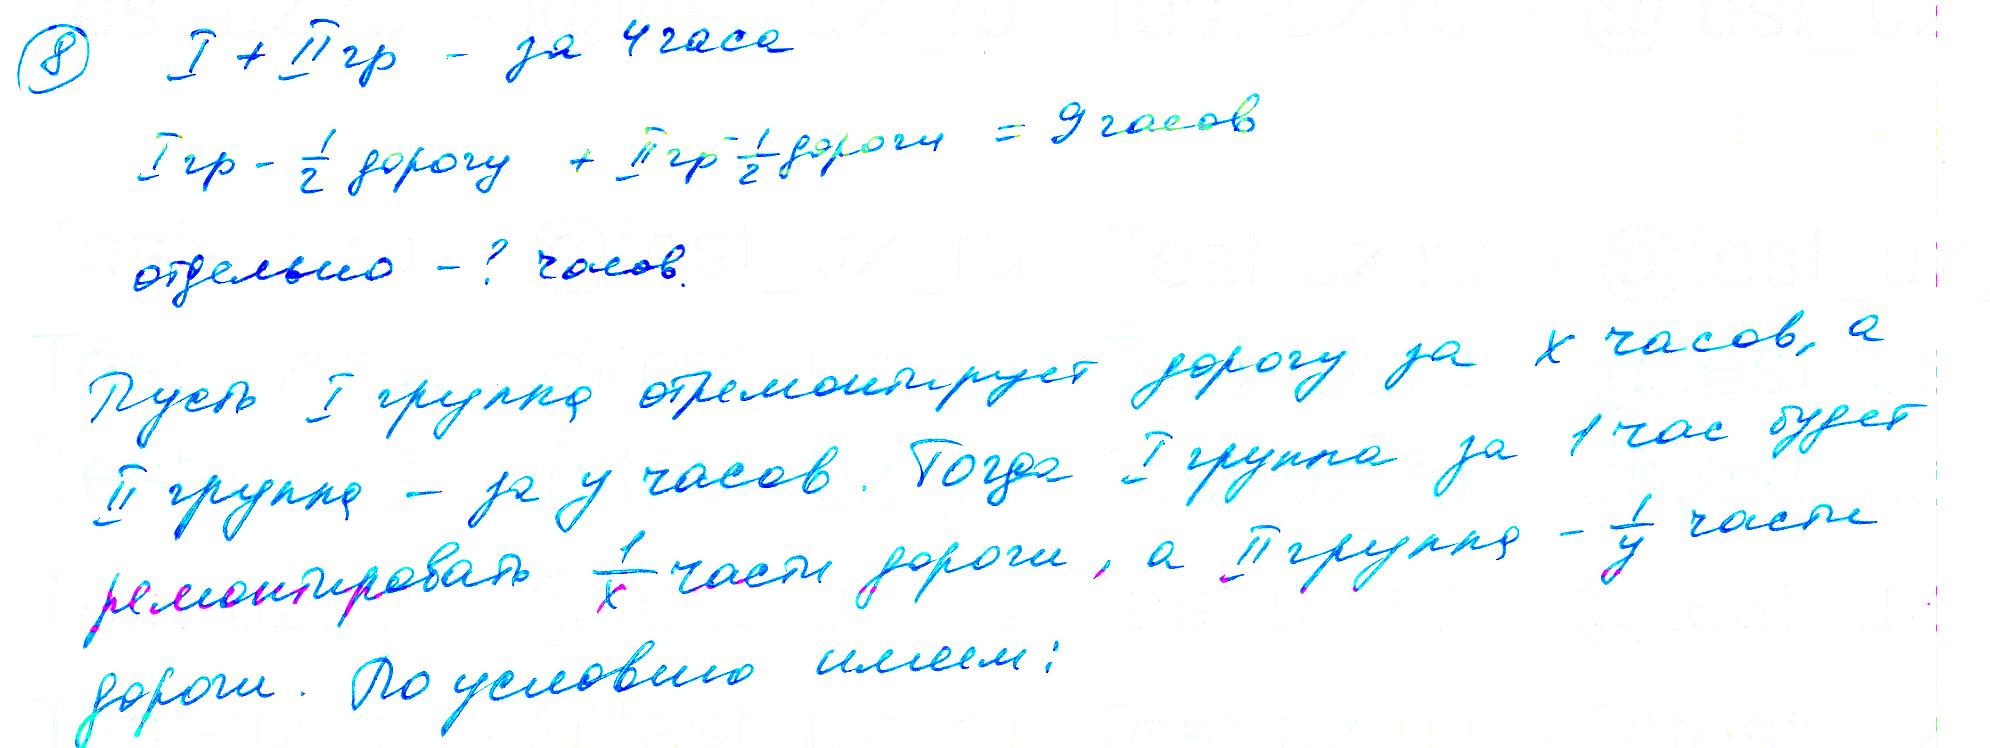 ⑧ I + II гр - за 4 часа
I гр - 1/2 дорогу + II гр - 1/2 дороги = 9 часов
отдельно - ? часов.
Пусть I группа отремонтирует дорогу за x часов, а
II группа - за y часов. Тогда I группа за 1 час будет
ремонтировать 1/x части дороги, а II группа - 1/y части
дороги. По условию имеем: